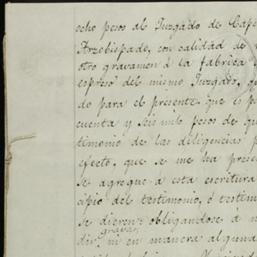 echo pesos al Juzgado de Cape
Arzobispado, con calidad de
otro gravamen á la fabrica
espreso del mismo Juzgado,
do para el presente que es p
cuenta y seis mil pesos de qu
timonio de las diligencias p
efecto, que se me ha prese
se agregue á esta escritura
cipio del testimonio, ó testim
se dieren obligandose á n
gravar,
dir, ni en manera alguna